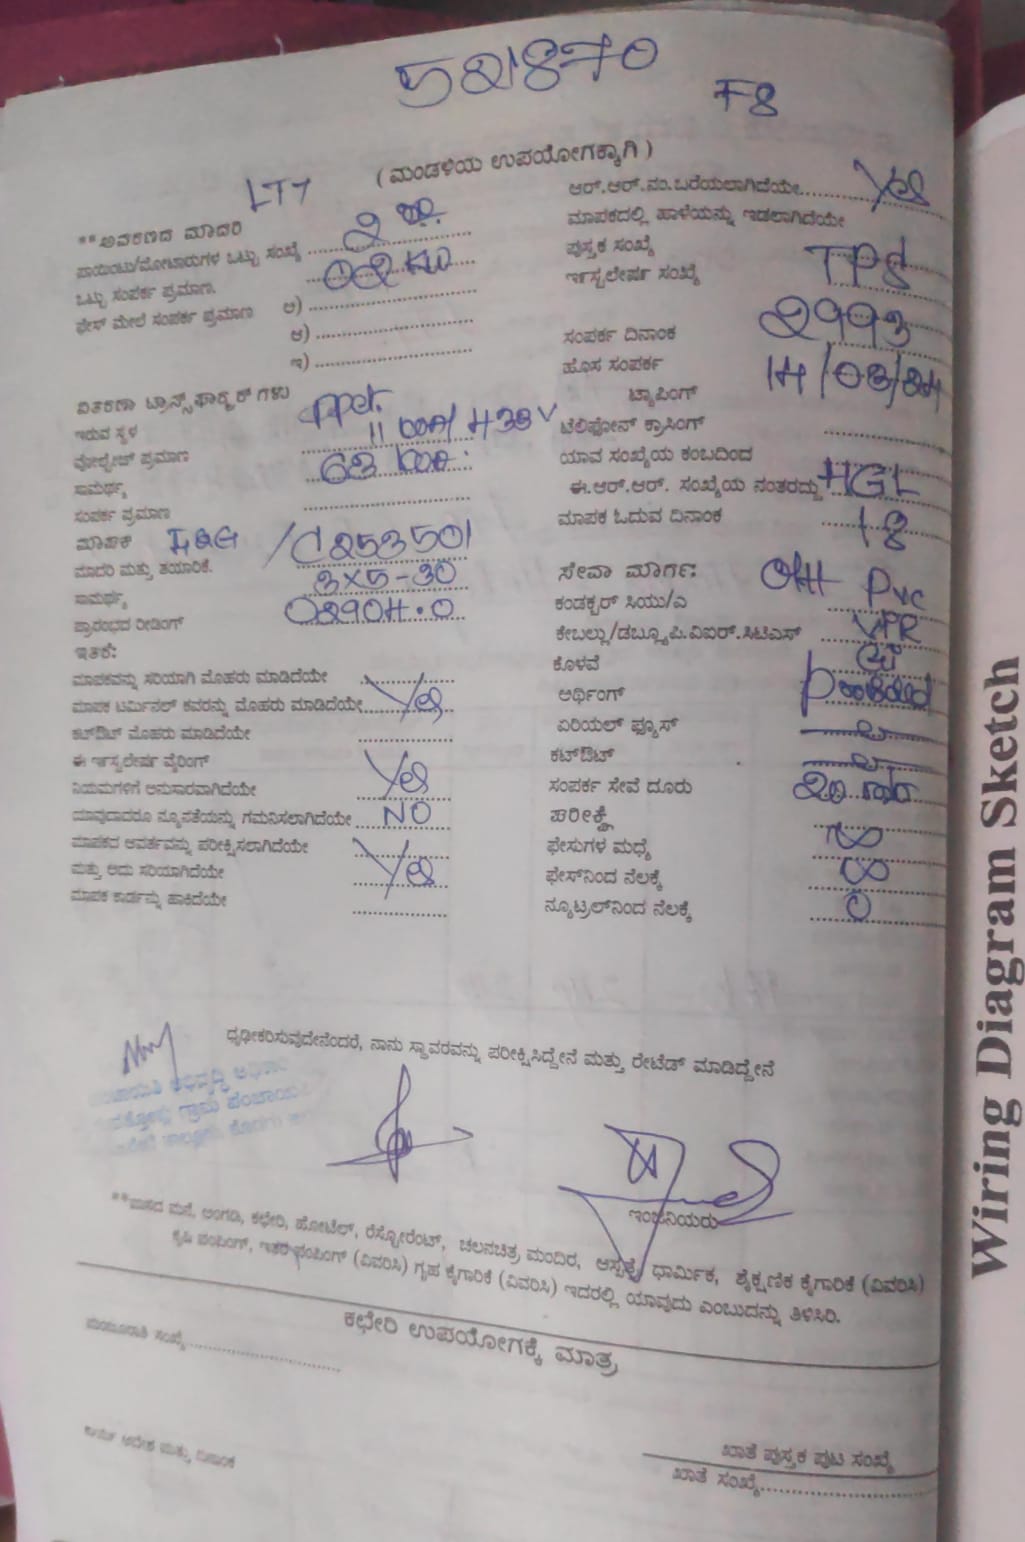 521870
F8
( ಮಂಡಳಿಯ ಉಪಯೋಗಕ್ಕಾಗಿ )
LT7
**ಅವಕಣದ ಮಾದರಿ
ಪಾಯಿಂಟು/ಮೋಟಾರುಗಳ ಒಟ್ಟು ಸಂಖ್ಯೆ ........ 2
ಒಟ್ಟು ಸಂಪರ್ಕ ಪ್ರಮಾಣ. ........ 02 KW
ಫೇಸ್ ಮೇಲೆ ಸಂಪರ್ಕ ಪ್ರಮಾಣ ಅ) ........
ಆ) ........
ಇ) ........
ವಿತರಣಾ ಟ್ರಾನ್ಸ್‌ಫಾರ್ಮರ್ ಗಳು
ಇರುವ ಸ್ಥಳ
ವೋಲ್ಟೇಜ್ ಪ್ರಮಾಣ 433 V
ಸಾಮರ್ಥ್ಯ 63
ಸಂಪರ್ಕ ಪ್ರಮಾಣ ........
ಮಾಪಕ L&G /C253501
ಮಾದರಿ ಮತ್ತು ತಯಾರಿಕೆ.
ಸಾಮರ್ಥ್ಯ 3X5-30
ಪ್ರಾರಂಭದ ರೀಡಿಂಗ್ 02904.0
ಇತರೆ:
ಮಾಪಕವನ್ನು ಸರಿಯಾಗಿ ಮೊಹರು ಮಾಡಿದೆಯೇ ........
ಮಾಪಕ ಟರ್ಮಿನಲ್ ಕವರನ್ನು ಮೊಹರು ಮಾಡಿದೆಯೇ.... Yes
ಕಟ್‌ಔಟ್ ಮೊಹರು ಮಾಡಿದೆಯೇ ........
ಈ ಇನ್ಸ್ಟಲೇಷನ್ ವೈರಿಂಗ್
ನಿಯಮಗಳಿಗೆ ಅನುಸಾರವಾಗಿದೆಯೇ Yes
ಯಾವುದಾದರೂ ನ್ಯೂನತೆಯನ್ನು ಗಮನಿಸಲಾಗಿದೆಯೇ .... NO
ಮಾಪಕದ ಆವರ್ತವನ್ನು ಪರೀಕ್ಷಿಸಲಾಗಿದೆಯೇ
ಮತ್ತು ಅದು ಸರಿಯಾಗಿದೆಯೇ Yes
ಮಾಪಕ ಕಾರ್ಡನ್ನು ಹಾಕಿದೆಯೇ ........
ಆರ್.ಆರ್.ನಂ.ಬರೆಯಲಾಗಿದೆಯೇ........ Yes
ಮಾಪಕದಲ್ಲಿ ಹಾಳೆಯನ್ನು ಇಡಲಾಗಿದೆಯೇ
ಪುಸ್ತಕ ಸಂಖ್ಯೆ
ಇನ್ಸ್ಟಲೇಷನ್ ಸಂಖ್ಯೆ TPS
2993
ಸಂಪರ್ಕ ದಿನಾಂಕ
ಹೊಸ ಸಂಪರ್ಕ 14/03/24
ಟ್ಯಾಪಿಂಗ್
ಟೆಲಿಫೋನ್ ಕ್ರಾಸಿಂಗ್ ........
ಯಾವ ಸಂಖ್ಯೆಯ ಕಂಬದಿಂದ
ಈ.ಆರ್.ಆರ್. ಸಂಖ್ಯೆಯ ನಂತರದ್ದು HGL
ಮಾಪಕ ಓದುವ ದಿನಾಂಕ 18
ಸೇವಾ ಮಾರ್ಗ: OH
ಕಂಡಕ್ಟರ್ ಸಿಯು/ಎ Pvc
ಕೇಬಲ್ಲು/ಡಬ್ಲ್ಯೂ.ಪಿ.ವಿಐರ್.ಸಿಟಿಎಸ್ VPR
ಕೊಳವೆ GI
ಅರ್ಥಿಂಗ್ Provided
ಏರಿಯಲ್ ಫ್ಯೂಸ್
ಕಟ್‌ಔಟ್
ಸಂಪರ್ಕ ಸೇವೆ ದೂರು 20 mtr
ಪರೀಕ್ಷೆ
ಫೇಸುಗಳ ಮಧ್ಯೆ ∞
ಫೇಸ್‌ನಿಂದ ನೆಲಕ್ಕೆ ∞
ನ್ಯೂಟ್ರಲ್‌ನಿಂದ ನೆಲಕ್ಕೆ 0
ಧೃಢೀಕರಿಸುವುದೇನೆಂದರೆ, ನಾನು ಸ್ಥಾವರವನ್ನು ಪರೀಕ್ಷಿಸಿದ್ದೇನೆ ಮತ್ತು ರೇಟೆಡ್ ಮಾಡಿದ್ದೇನೆ
ಅಭಿವೃದ್ಧಿ
ಗ್ರಾಮ ಪಂಚಾಯಿತಿ
ಇಂಜಿನಿಯರು
**ವಾಸದ ಮನೆ, ಅಂಗಡಿ, ಕಛೇರಿ, ಹೋಟೆಲ್, ರೆಸ್ಟೋರೆಂಟ್, ಚಲನಚಿತ್ರ ಮಂದಿರ, ಆಸ್ಪತ್ರೆ, ಧಾರ್ಮಿಕ, ಶೈಕ್ಷಣಿಕ ಕೈಗಾರಿಕೆ (ವಿವರಿಸಿ)
ಕೃಷಿ ಪಂಪಿಂಗ್, ಇತರ ಪಂಪಿಂಗ್ (ವಿವರಿಸಿ) ಗೃಹ ಕೈಗಾರಿಕೆ (ವಿವರಿಸಿ) ಇದರಲ್ಲಿ ಯಾವುದು ಎಂಬುದನ್ನು ತಿಳಿಸಿರಿ.
ಕಛೇರಿ ಉಪಯೋಗಕ್ಕೆ ಮಾತ್ರ
ಮಂಜೂರಾತಿ ಸಂಖ್ಯೆ........
ಕಾರ್ಯ ಆದೇಶ ಮತ್ತು ದಿನಾಂಕ
ಖಾತೆ ಪುಸ್ತಕ ಪುಟ ಸಂಖ್ಯೆ
ಖಾತೆ ಸಂಖ್ಯೆ........
Wiring Diagram Sketch